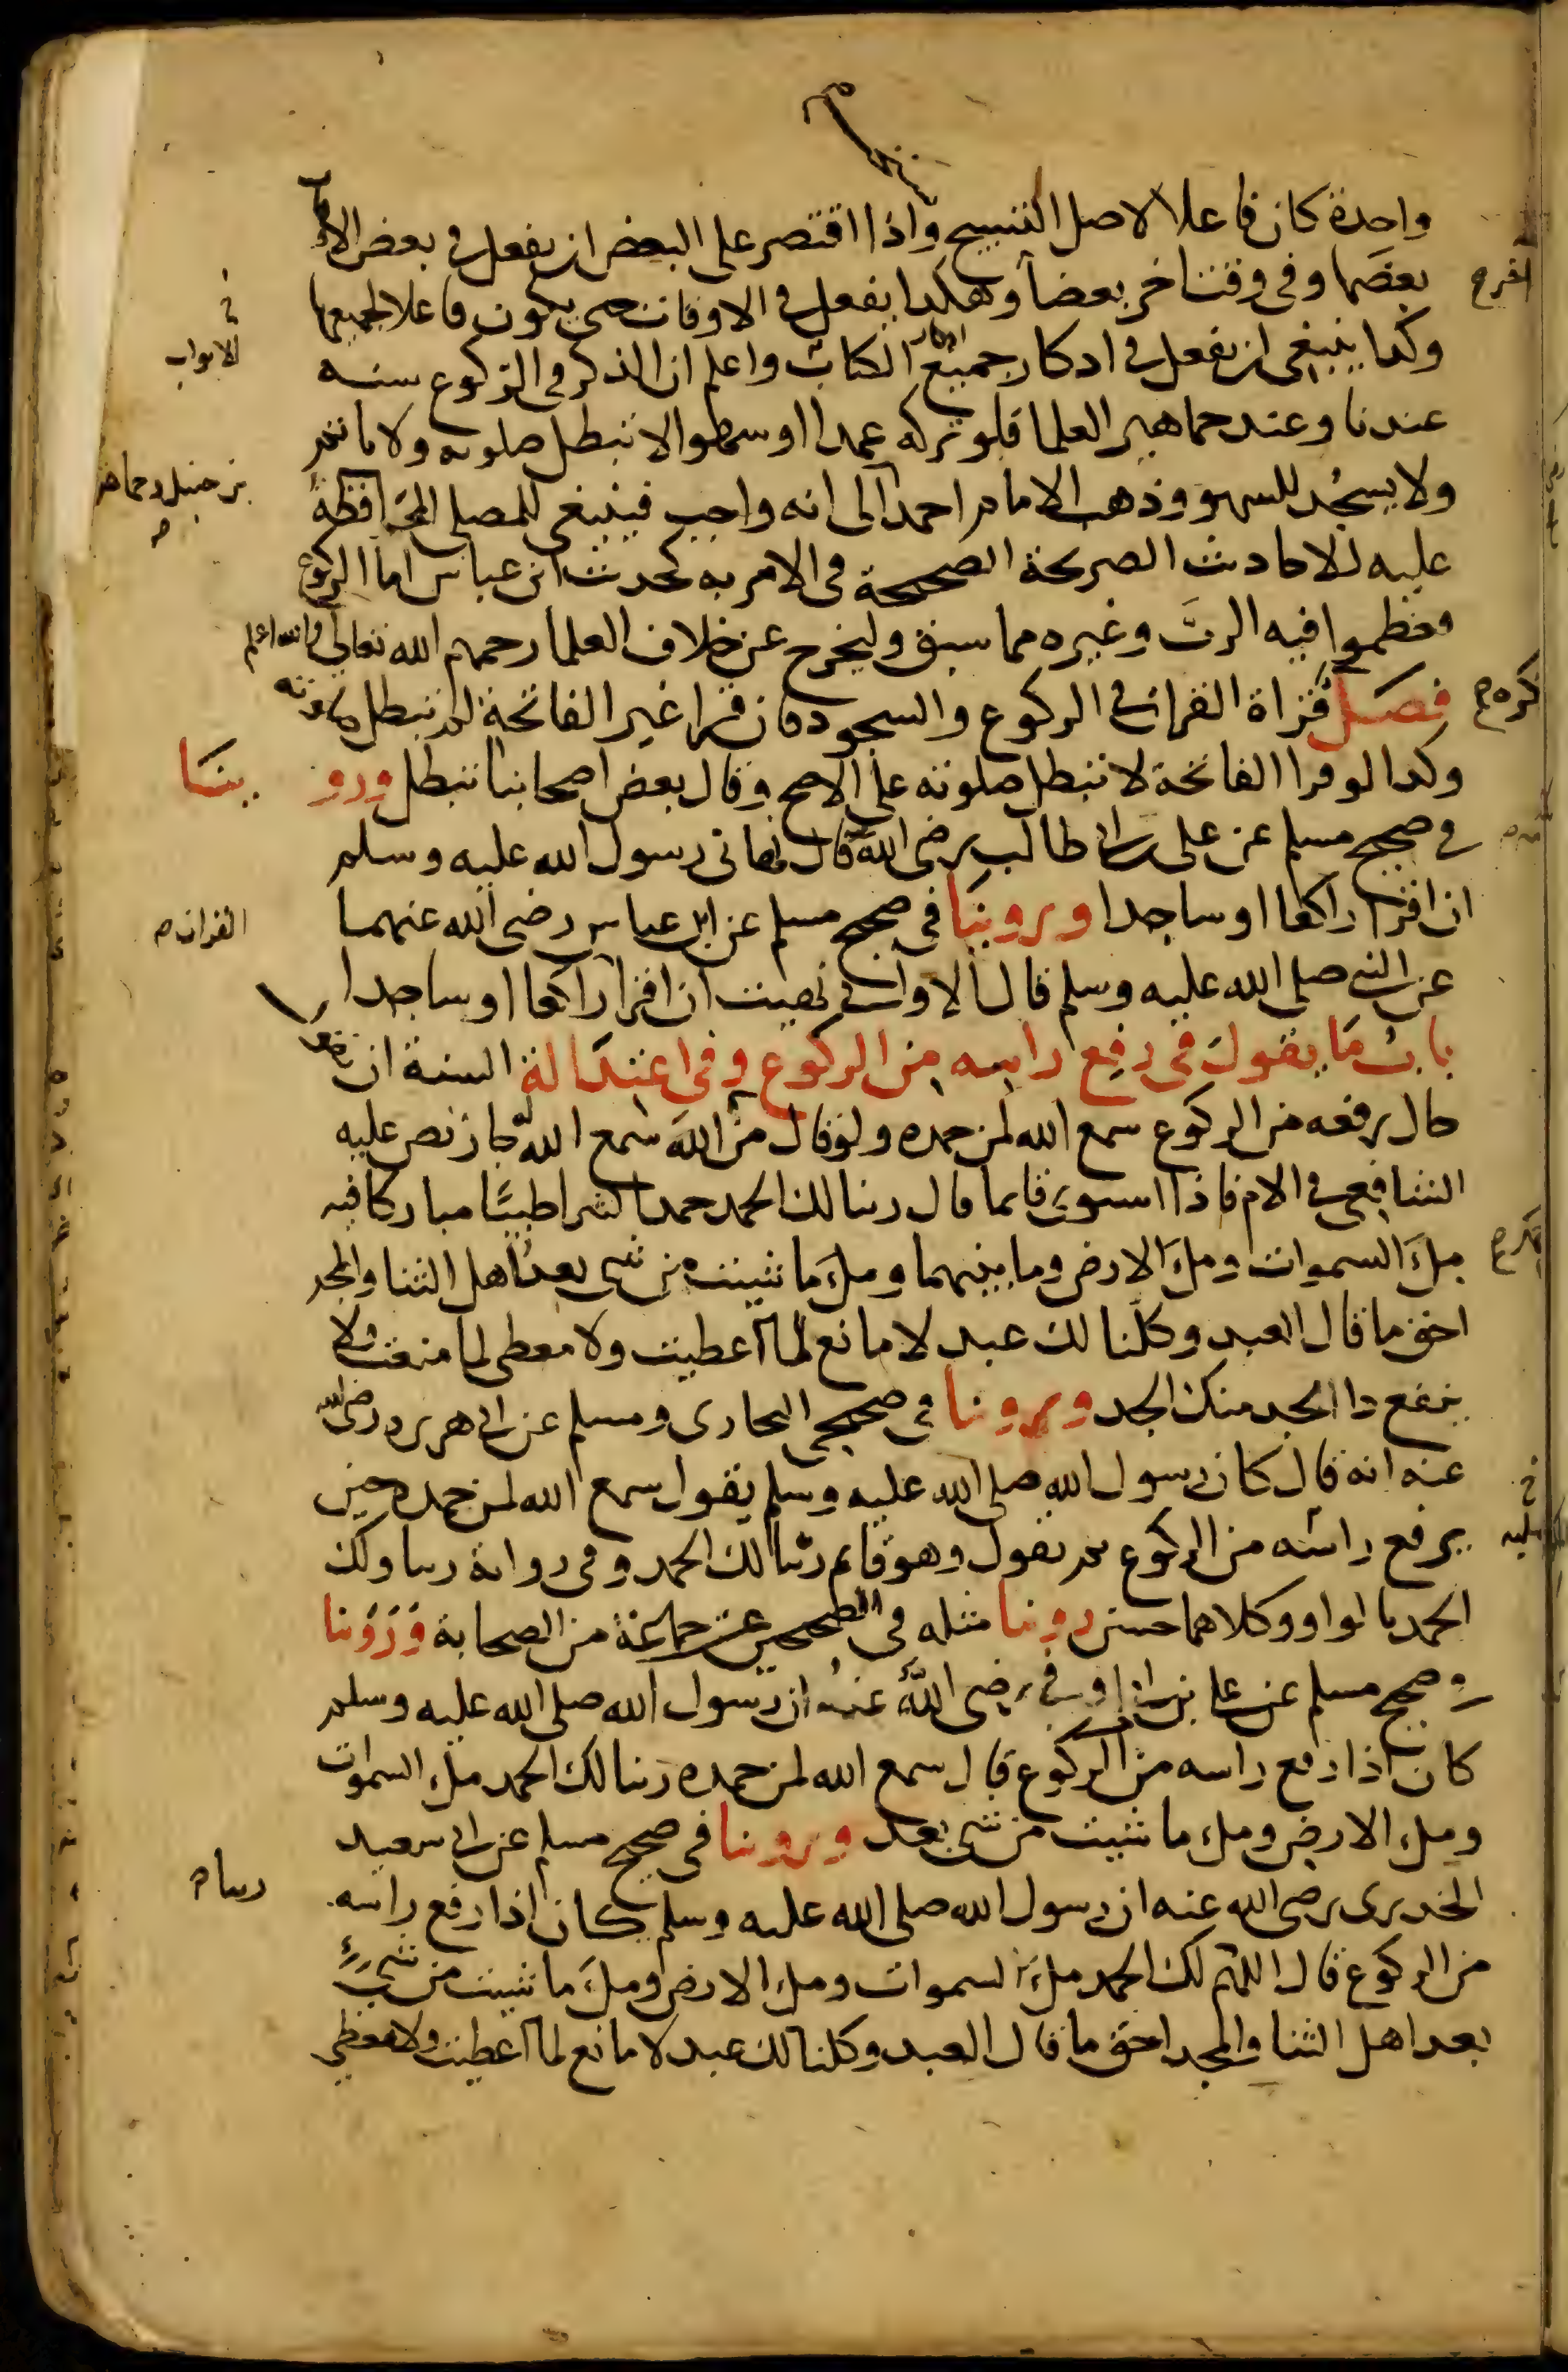 واحدة كان فاعلا لاصل التسبيح واذا اقتصر على البعض ان يفعل في بعض الاوقات
بعضها وفي وقت اخر بعضا وهكذا يفعل في الاوقات حتى يكون فاعلا لجميعها
وكذا ينبغي ان يفعل في اذكار جميع الكتاب واعلم ان الذكر في الركوع سنه
الابواب
عندنا وعند جماهير العلما فلو تركه عمدا او سهوا لا تبطل صلوته ولا ياثم
ولا يسجد للسهو وذهب الامام احمد الى انه واجب فينبغي للمصلي المحافظة
بن حنبل وجماعه
عليه للاحاديث الصريحة الصحيحة في الامر به كحديث ابن عباس اما الركوع
فعظموا فيه الرب وغيره مما سبق وليخرج عن خلاف العلما رحمهم الله تعالى والله اعلم
فصل قراة القران في الركوع والسجود فان قرا غير الفاتحة لم تبطل صلوته
وكذا لو قرا الفاتحة لا تبطل صلوته على الاصح وقال بعض اصحابنا تبطل وروينا
في صحيح مسلم عن علي بن ابي طالب رضي الله قال نهاني رسول الله عليه وسلم
ان اقرا راكعا او ساجدا وروينا في صحيح مسلم عن ابن عباس رضي الله عنهما
القران
عن النبي صلى الله عليه وسلم قال الا واني نهيت ان اقرا راكعا او ساجدا
باب ما يقول في رفع راسه من الركوع وفي اعتداله السنة ان يقول
حال رفعه من الركوع سمع الله لمن حمده ولو قال من حمد الله سمع الله له جاز نص عليه
الشافعي في الام فاذا استوى قايما قال ربنا لك الحمد حمدا كثيرا طيبا مباركا فيه
ملء السموات وملء الارض وما بينهما وملء ما شيت من شي بعد اهل الثنا والمجد
احق ما قال العبد وكلنا لك عبد لا مانع لما اعطيت ولا معطي لما منعت ولا
ينفع ذا الجد منك الجد وروينا في صحيحي البخاري ومسلم عن ابي هريره رضي الله
عنه انه قال كان رسول الله صلى الله عليه وسلم يقول سمع الله لمن حمده حين
يرفع راسه من الركوع ثم يقول وهو قايم ربنا لك الحمد وفي رواية ربنا ولك
الحمد بالواو وكلاهما حسن روينا مثله في الصحيحين عن جماعة من الصحابة وروينا
في صحيح مسلم عن علي وابن ابي اوفى رضي الله عنه ان رسول الله صلى الله عليه وسلم
كان اذا رفع راسه من الركوع قال سمع الله لمن حمده ربنا لك الحمد ملء السموات
وملء الارض وملء ما شيت من شي بعد وروينا في صحيح مسلم عن ابي سعيد
الخدري رضي الله عنه ان رسول الله صلى الله عليه وسلم كان اذا رفع راسه
ربنا
من الركوع قال اللهم لك الحمد ملء السموات وملء الارض وملء ما شيت من شيء
بعد اهل الثنا والمجد احق ما قال العبد وكلنا لك عبد لا مانع لما اعطيت ولا معطي